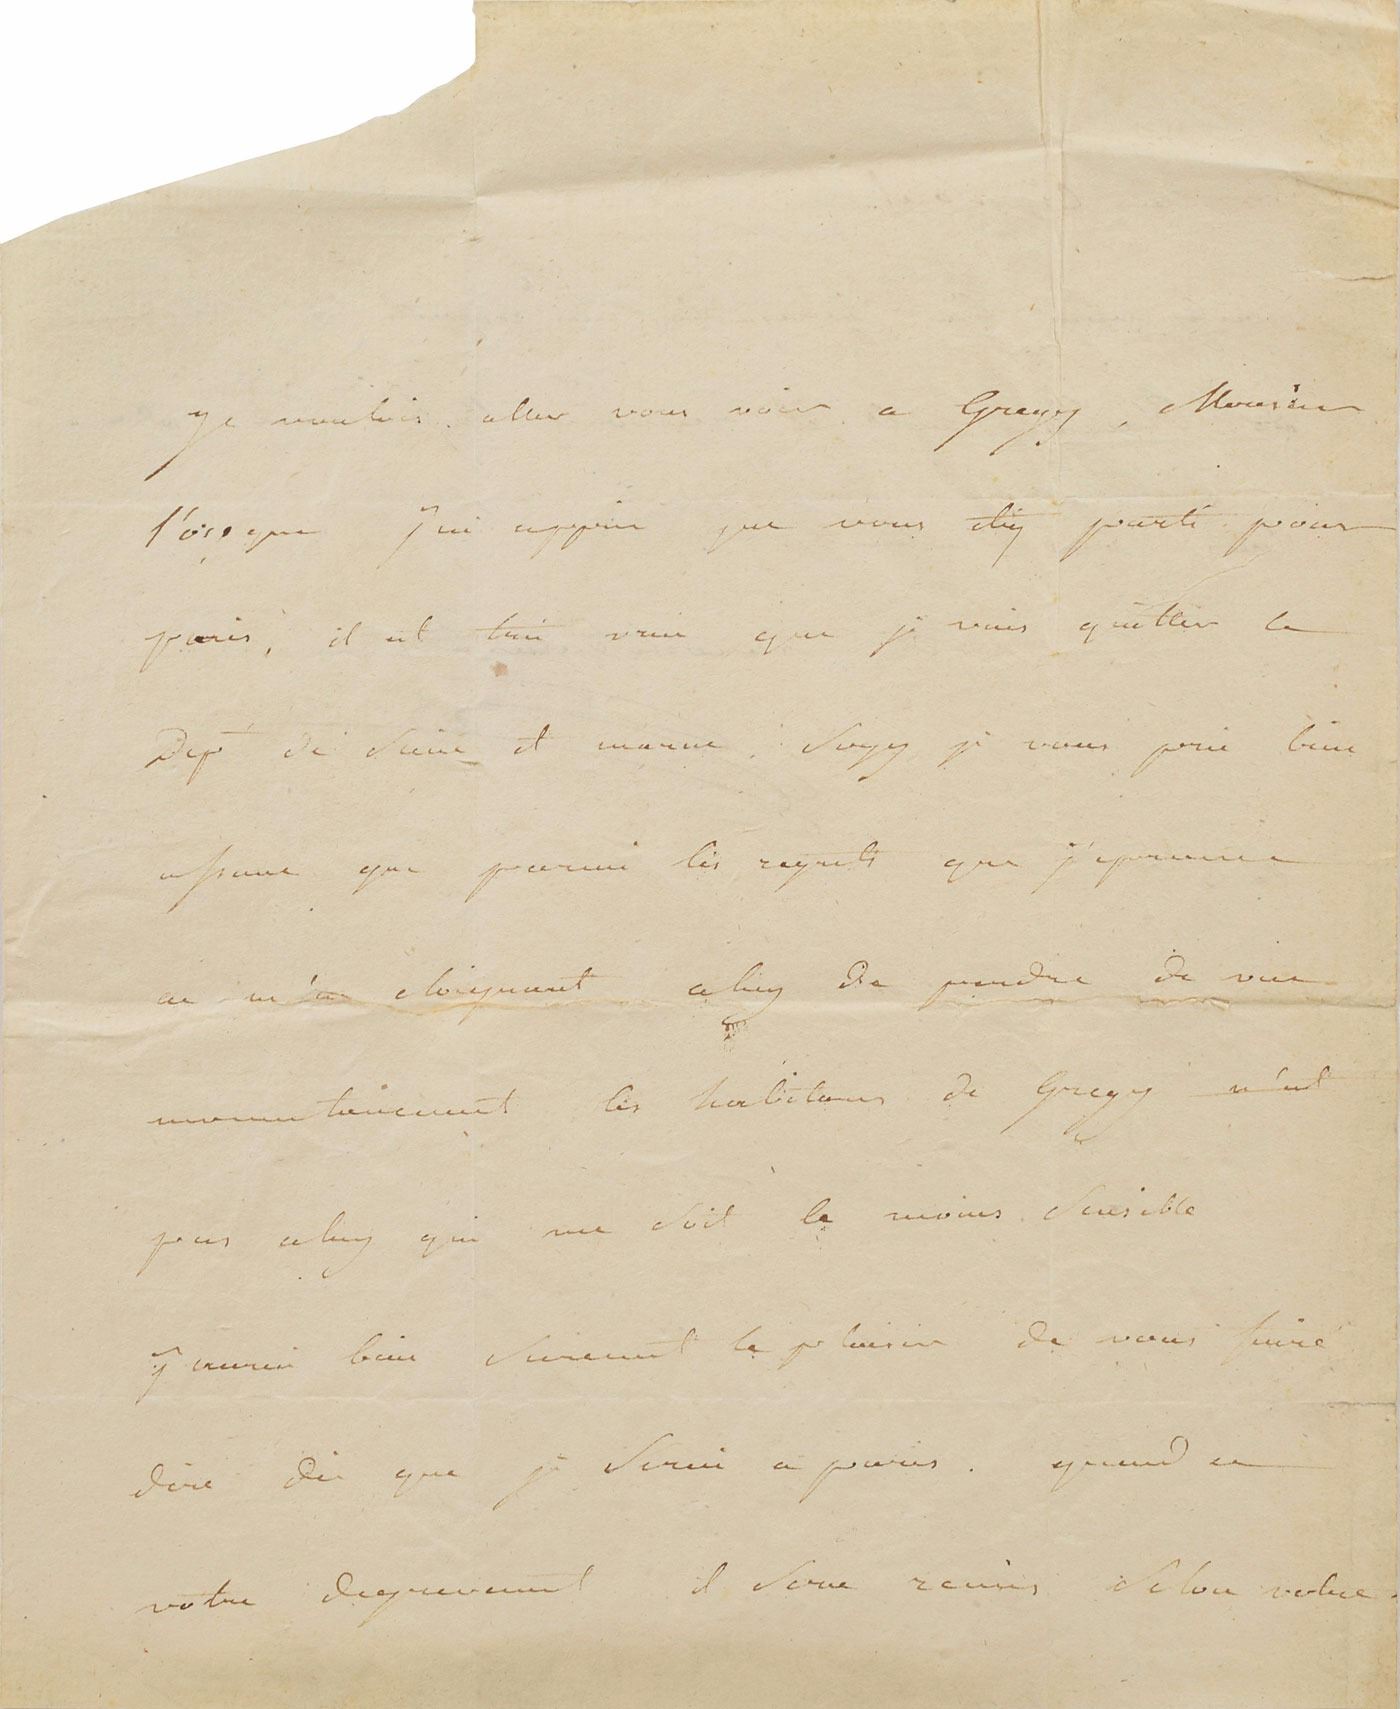 je voulois aller vous voir a Gregy, Monsieur
lorsque j'ai appris que vous etiez parti pour
paris, il est très vrai que je vais quitter le
Dept de Seine et marne. Soyez je vous prie bien
assuré que parmi les regrets que j'eprouve
en m'en eloignant celuy de perdre de vue
momentanement les habitans de Gregy n'est
pas celuy qui me soit le moins sensible
j'aurai bien surement le plaisir de vous faire
dire dès que je serai a paris. quand a
votre degrevement il sera remis selon votre